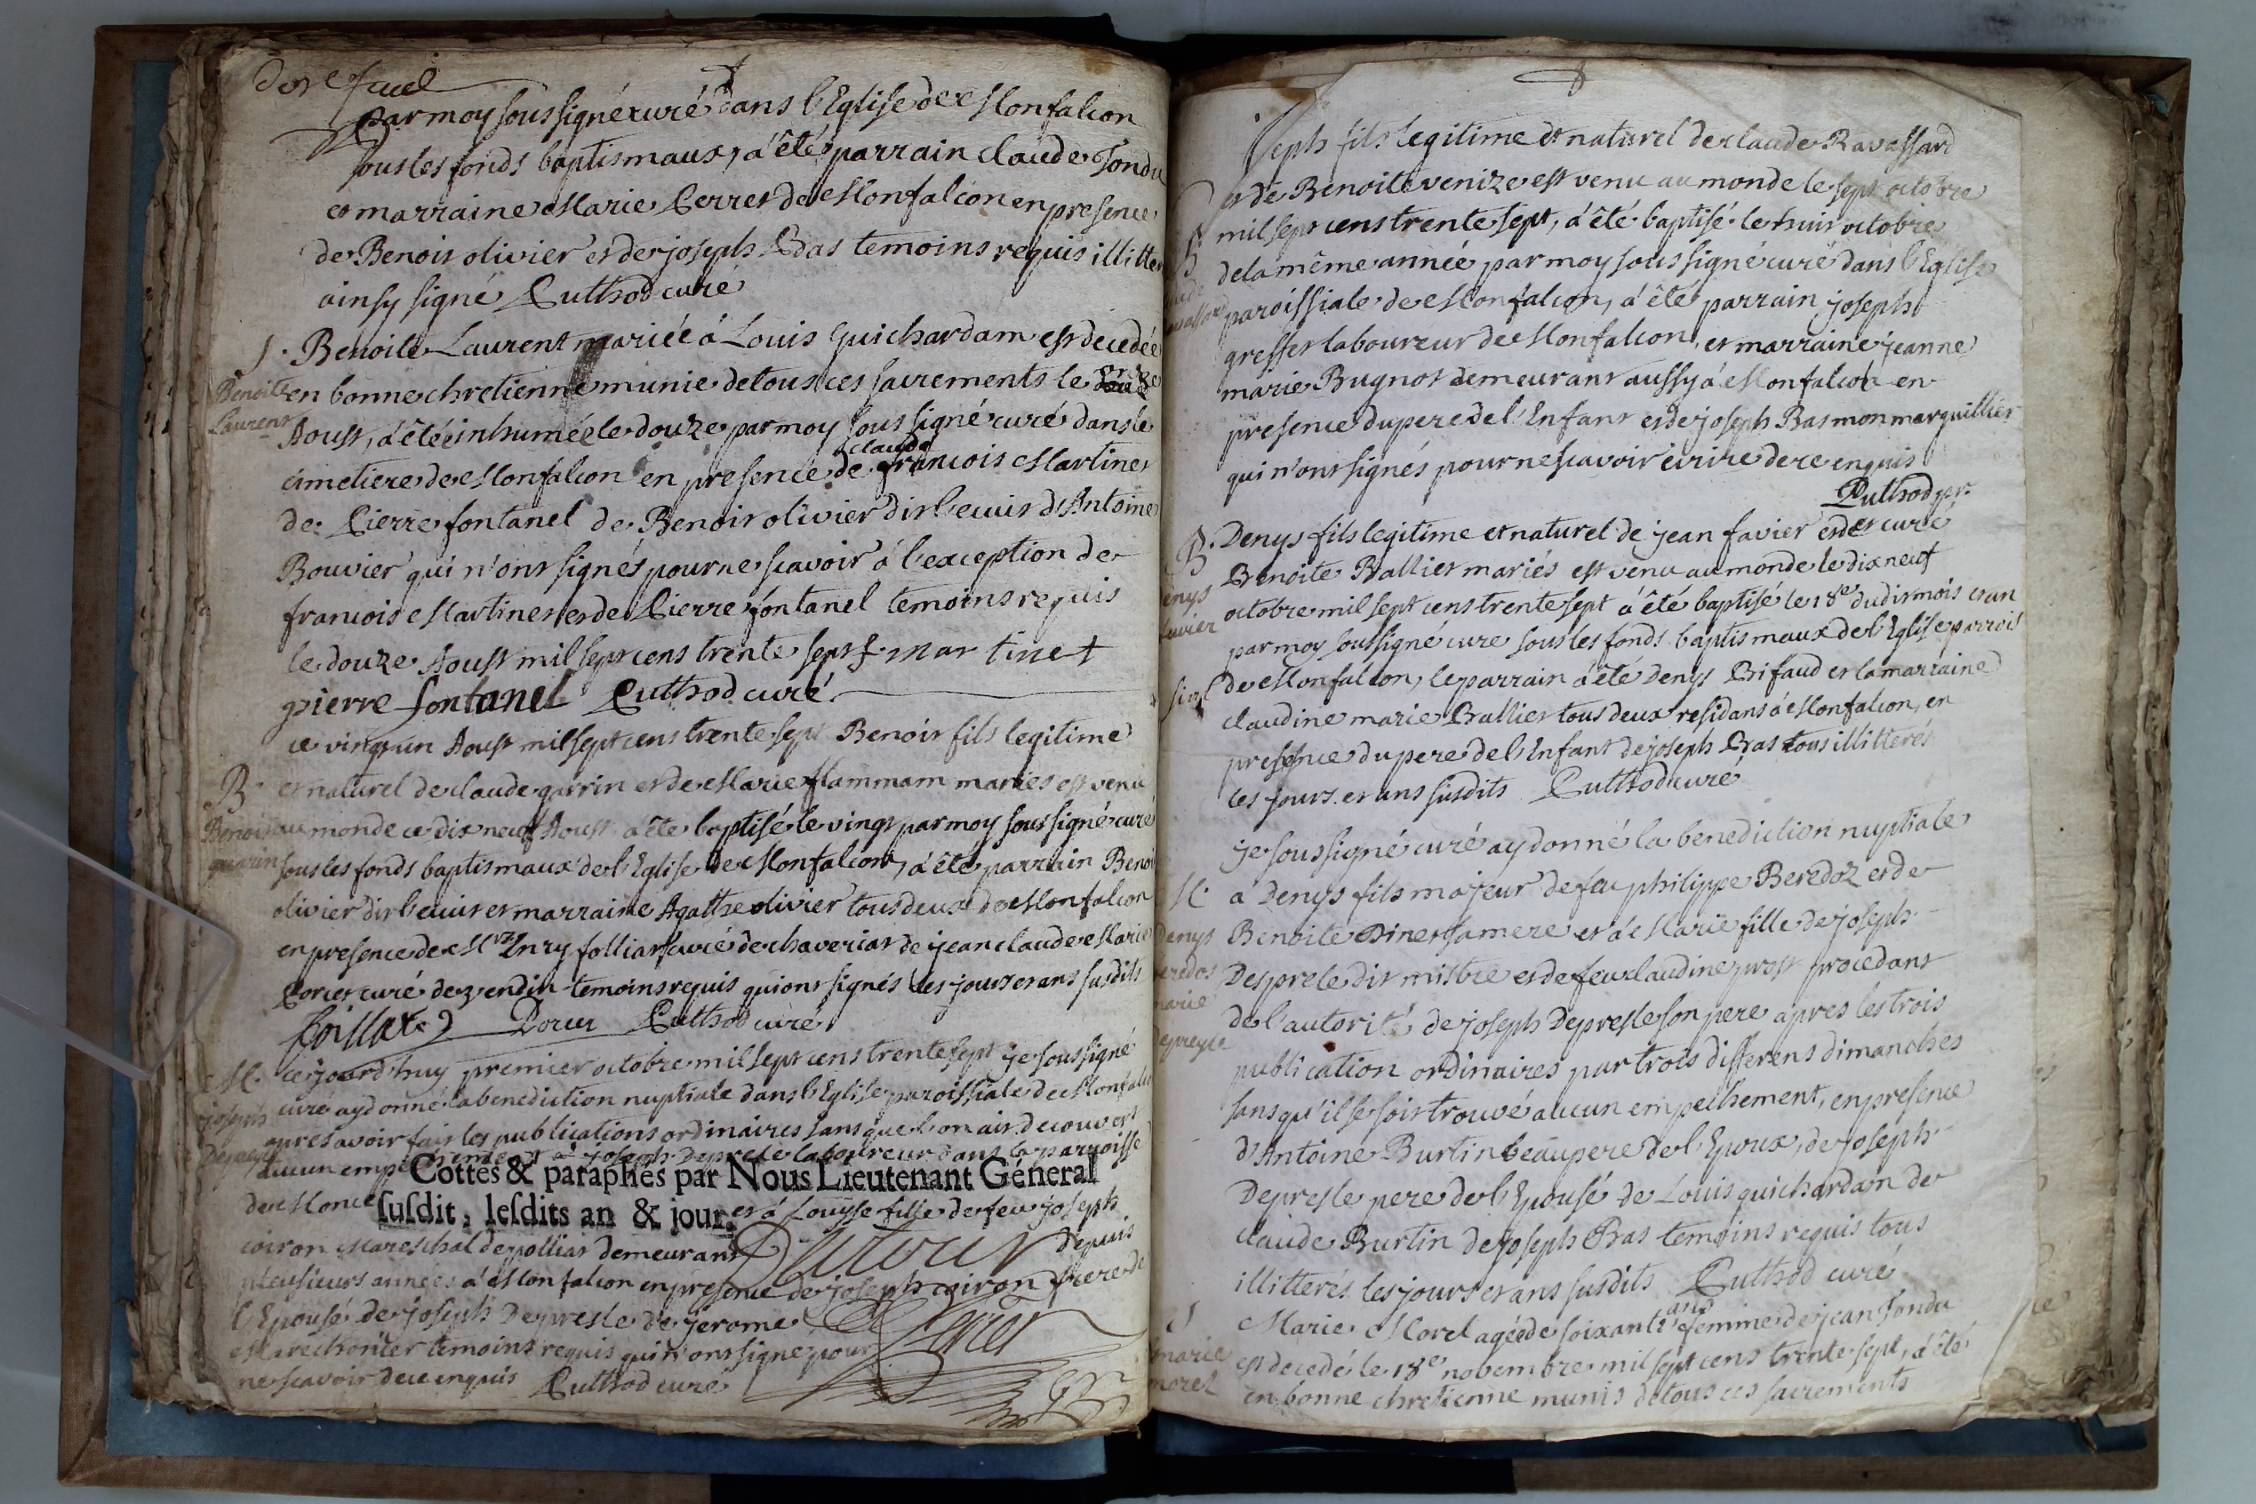 par moy sous signé curé dans l'Eglise de Monfalcon
sous les fonds baptismaux, a été parrain claude Fondu
et marraine Marie Perret de Monfalcon en presence
de Benoit olivier et de joseph Bas temoins requis illitter
ainsy signé Puthod curé
Benoite Laurent
Benoite Laurent mariée a Louis Guichardam est decedée
en bonne chretienne munie de tous ces sacrements le
Aoust, a été inhumée le douze par moy sous signé curé dans le
cimetiere de Monfalcon en presence de claude francois Martinet
de Pierre fontanel de Benoit olivier dit l'ecuit d'Antoine
Bouvier qui n'ont signés pour ne scavoir à l'exception de
francois Martinet et de Pierre fontanel temoins requis
le douze Aoust mil sept cens trente sept f martinet
pierre fontanel Puthod curé
B.
Benoit guerin
ce vingt un Aoust mil sept cens trente sept Benoit fils legitime
et naturel de claude guerin et de Marie flammam mariés est venu
au monde ce dix neuf Aoust a été baptisé le vingt par moy sous signé curé
sous les fonds baptismaux de l'Eglise de Monfalcon, a été parrain Benoi
olivier dit l'ecuit et marraine Agathe olivier tous deux de Monfalcon
en presence de Mre Enry folliat curé de chaveriat de jean claude Marie
curé de vendin temoins requis qui ont signés les jours et ans susdits
Puthod curé
M.
joseph
cejourd'huy premier octobre mil sept cens trente sept je sous signé
curé ay donné la benediction nuptiale dans l'Eglise paroissiale de Monfalcon
apres avoir fait les publications ordinaires sans que l'on ait decouvert
aucun empechement a joseph Deprele laboureur dans la parroisse
Cottés & paraphés par Nous Lieutenant Géneral
de Mon et à Louyse fille de feu joseph
susdit, lesdits an & jour.
coiron Mareschal de polliat demeurant depuis
pleusieurs années a Monfalcon en presence de joseph coiron frere de
l'Epouse de joseph Depresle de jerome
temoins requis qui n'ont signé pour
ne scavoir de ce enquis Puthod curé
B
joseph fils legitime et naturel de claude Ravassard
et de Benoite venize est venu au monde le sept octobre
mil sept cens trente sept, a été baptisé le huit octobre
de la même année par moy sous signé curé dans l'Eglise
paroissiale de Monfalcon, a été parrain joseph
greffet laboureur de Monfalcon, et marraine jeanne
marie Bugnot demeurant aussy a Monfalcon en
presence du pere de l'Enfant et de joseph Bas mon marguillier
qui n'ont signés pour ne scavoir ecrire de ce enquis
Puthod ptr.
et curé
B.
Denys favier
Denys fils legitime et naturel de jean favier et de
Benoite Ballier mariés est venu au monde le dix neuf
octobre mil sept cens trente sept a été baptisé le 18e dudit mois et an
par moy soussigné curé sous les fonds baptismaux de l'Eglise parrois
de Monfalcon, le parrain a été Denys Bifaud et la marraine
claudine marie Ballier tous deux residans a Monfalcon, en
presence du pere de l'Enfant de joseph Bas tous illitterés
les jours et ans susdits Puthod curé
M.
Denys
marie
je sous signé curé ay donné la benediction nuptiale
a Denys fils majeur de feu philippe Beredoz et de
Benoite Dinet sa mere et a Marie fille de joseph
Desprele dit mistre et de feu claudine prost procedant
de l'autorité de joseph Depresle son pere apres les trois
publication ordinaires par trois differens dimanches
sans qu'il se soit trouvé aucun empechement, en presence
d'Antoine Burtin beaupere de l'Epoux, de joseph
Depresle pere de l'Epouse de Louis guichardan de
claude Burtin de joseph Bas temoins requis tous
illitterés les jours et ans susdits Puthod curé
marie morel
Marie Morel agée de soixante ans femme de jean Fondu
est decedé le 18e nobembre mil sept cens trente sept, a été
en bonne chretienne munis de tous ces sacrements